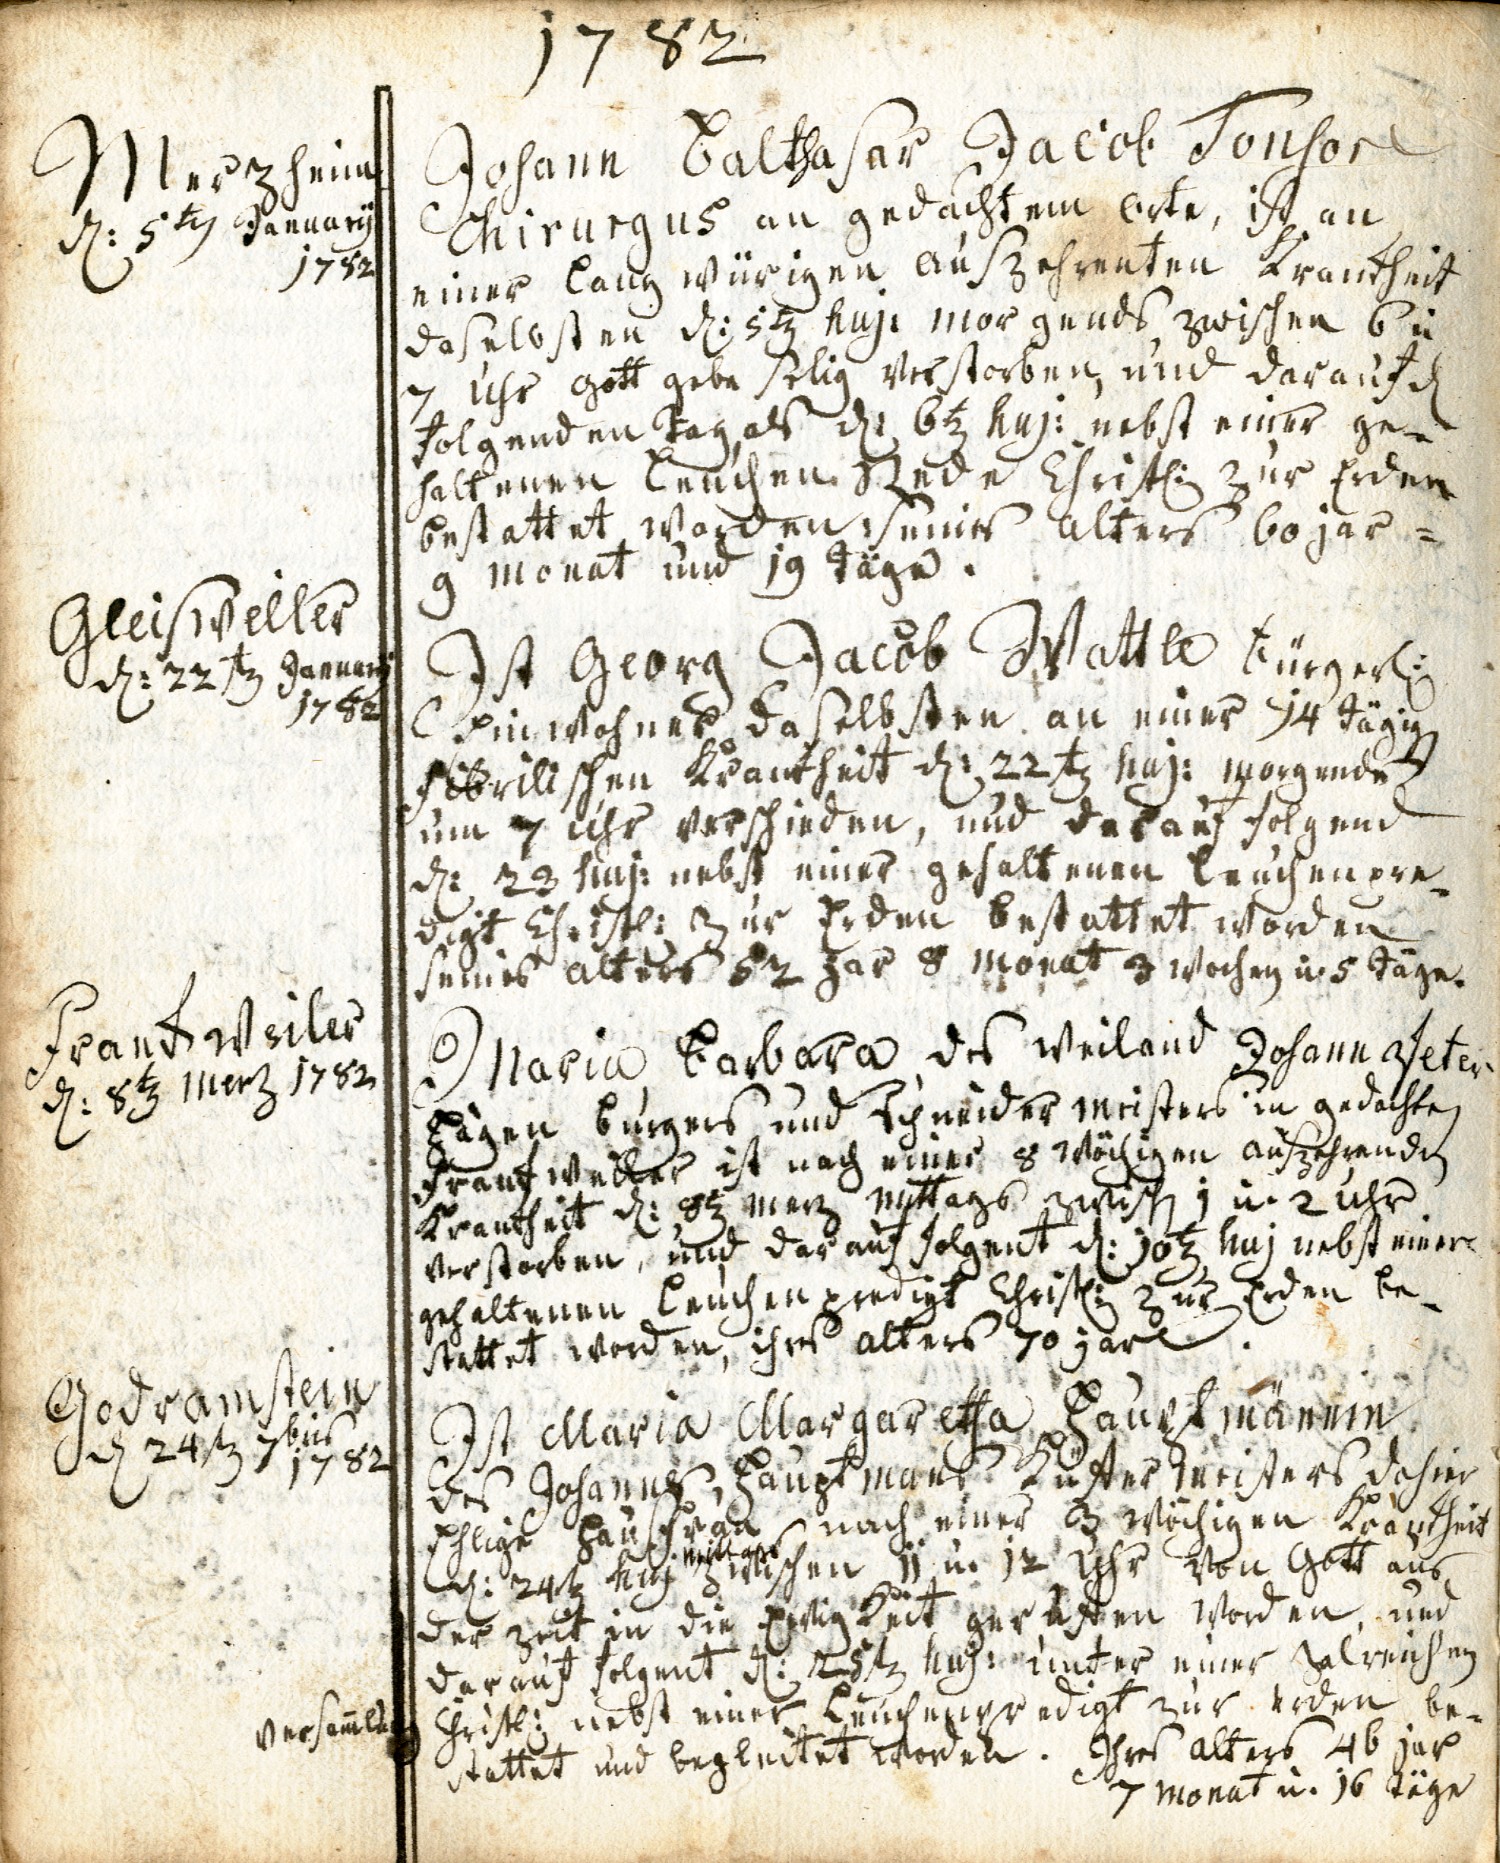 1782
Merzheim
d: 5ten January
1782
Johann Balthasar Jacob Tonsor
Chirurgus an gedachtem orte, ist an
einer lang würigen auszehrenten Krankheit
daselbsten d: 5ten huj: morgends zwischen 6 u
7 uhr gott gebe selig verstorben, und darauf d
folgenden tag als d: 6ten huj: nebst einer ge-
haltenen leuchen Rede Christl: zur Erden
bestattet worden seines alters 60 jar =
9 monat und 19 täge.
Gleisweiller
d: 22ten January
1782
Ist Georg Jacob Wattle bürgerl:
Einwohner daselbsten an einer 14 tägig
fibrilischen Krankheit d: 22ten huj: morgends
um 7 uhr verschieden, und darauf folgend
d: 23 huj: nebst einer gehaltenen leuchenpre-
digt Christl: zur Erden bestattet worden
seines alters 52 jar 8 monat 3 wochen u. 5 täge.
Frankweiler
d: 8ten Merz 1782
Maria Barbara des weiland Johann Peter
burgers und Schneider meisters in gedachten
Frankweiller ist nach einer 8 wöchigen auszehrenden
Krankheit d: 8ten Merz Mittags zwisch 1 u. 2 uhr
verstorben, und darauf folgent d: 10ten huj nebst einer
gehaltenen leuchenpredigt Christl: zur Erden be-
stattet worden, ihres alters 70 jar.
Godramstein
d 24ten 7bris
1782
Ist Maria Margaretha Hauptmännin
des Johannes Hauptmans Küfter Meisters dahier
Ehlige Hausfrau nach einer 3 wöchigen Krankheit
d: 24ten huj mittags zwischen 11 u. 12 uhr von Gott aus
der zeit in die Ewigkeit geruffen worden, und
darauf folgent d: 25ten huj: unter einer zalreichen
Christl: versamlung nebst einer Leuchenpredigt zur erden be-
stattet und begleitet worden. Ihres alters 46 jar
7 monat u. 16 täge